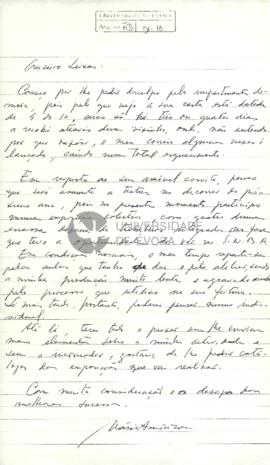 UNIVERSIDADE DE ÉVORA
Cruzeiro Seixas:
Começo por lhe pedir desculpa pela impertinente de-
mora, pois pelo que vejo a sua carta está datada
de 4 do 10, mas só há três ou quatro dias
a recebi através dum vizinho, onde, não entendo
por que razões, o meu correio algumas vezes é
lançado, caindo num total esquecimento.
Em resposta ao seu amável convite, penso
que será assunto a tratar no decorrer do próxi-
mo ano, pois no presente momento participo
numa exposição colectiva, com quatro duma
que teve a
S.N.B.A.
Em condições normais, o meu tempo reparte-se
pelas aulas que tenho que dar e pelo atelier, sendo
a minha produção muito lenta e agravada ainda
pelo processo que utilizo na sua feitura.
Só mais tarde, portanto, poderei pensar numa indi-
vidual.
Até lá, terei todo o prazer em lhe enviar
mais elementos sobre a minha actividade e
sem o incomodar, gostaria de lhe pedir catá-
logos das exposições que vai realizar.
Com muita consideração e os desejos dos
melhores sucessos
UNIVERSIDADE
DE ÉVORA